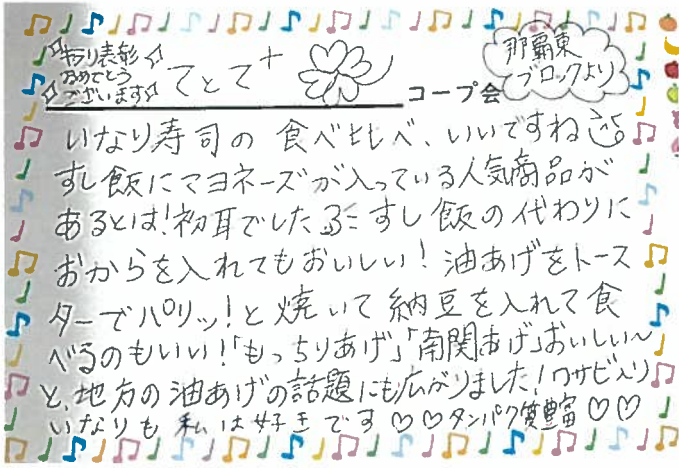 キラリ表彰
おめでとう
ございます
てとて+
コープ会
那覇東
ブロックより
いなり寿司の食べ比べ、いいですね
すし飯にマヨネーズが入っている人気商品が
あるとは!初耳でした すし飯の代わりに
おからを入れてもおいしい!油あげをトース
ターでパリッ!と焼いて納豆を入れて食
べるのもいい!「もっちりあげ」「南関あげ」おいしい〜
と、地方の油あげの話題にも広がりました!ワサビ入り
いなりも私は好きです♡♡タンパク質豊富♡♡